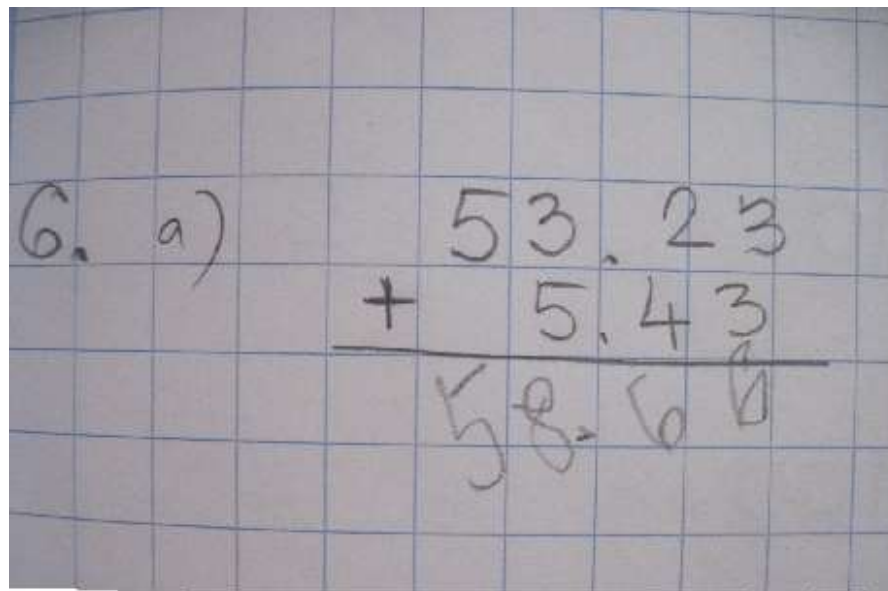 6. a) 53.23
+ 5.43
58.66